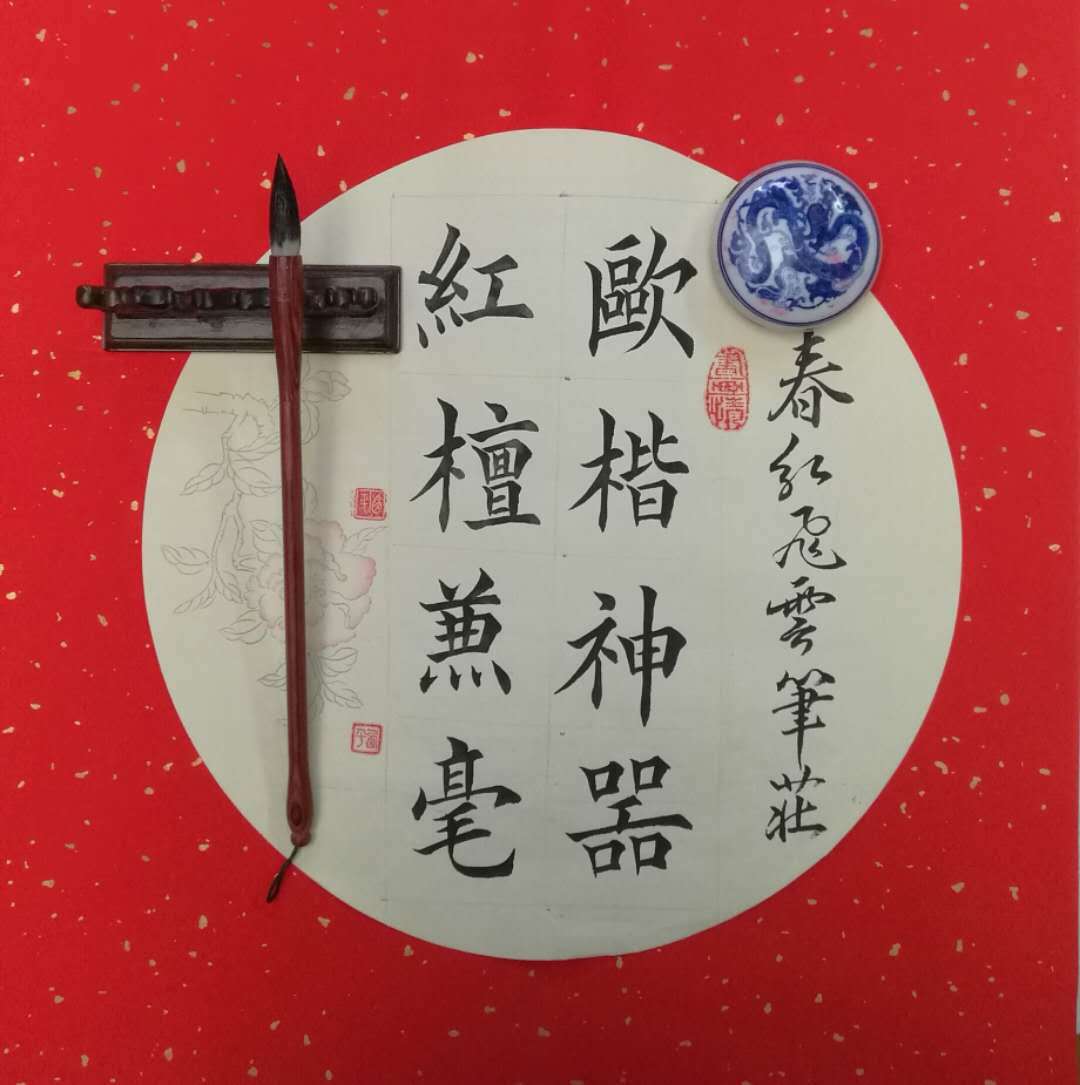 春紅飛雲筆莊
歐楷神器
紅檀兼毫